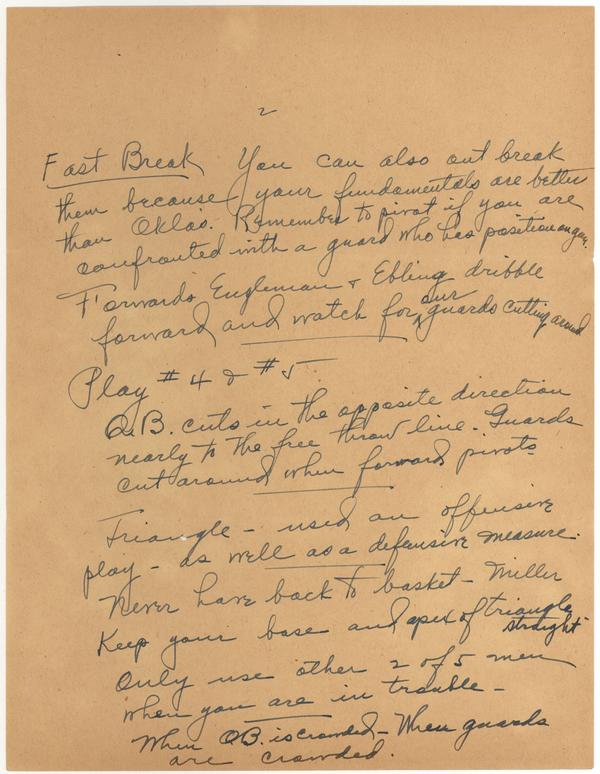 2
Fast Break You can also out break
them because your fundamentals are better
than Oklas. Remember to pivot if you are
confronted with a guard who has position on you.
Forwards Engleman & Ebling dribble
forward and watch for our guards cutting around
Play #4 & #5
Q.B. cuts in the opposite direction
nearly to the free throw line. Guards
cut around when forward pivots
Triangle - used as offensive
play - as well as a defensive measure.
Never have back to basket - Miller
Keep your base and apex of triangle
straight
Only use other 2 of 5 men
when you are in trouble -
When QB. is crowded - When guards
are crowded.